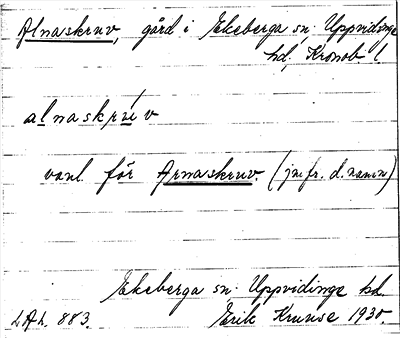 Alnaskruv, gård i Ekeberga sn. Uppvidinge
hd, Kronob. l.
alnaskruv
vanl. för Arnaskruv. (jmfr. d. namn)
Ekeberga sn. Uppvidinge hd.
LAL. 883. Erik Krunse 1930.